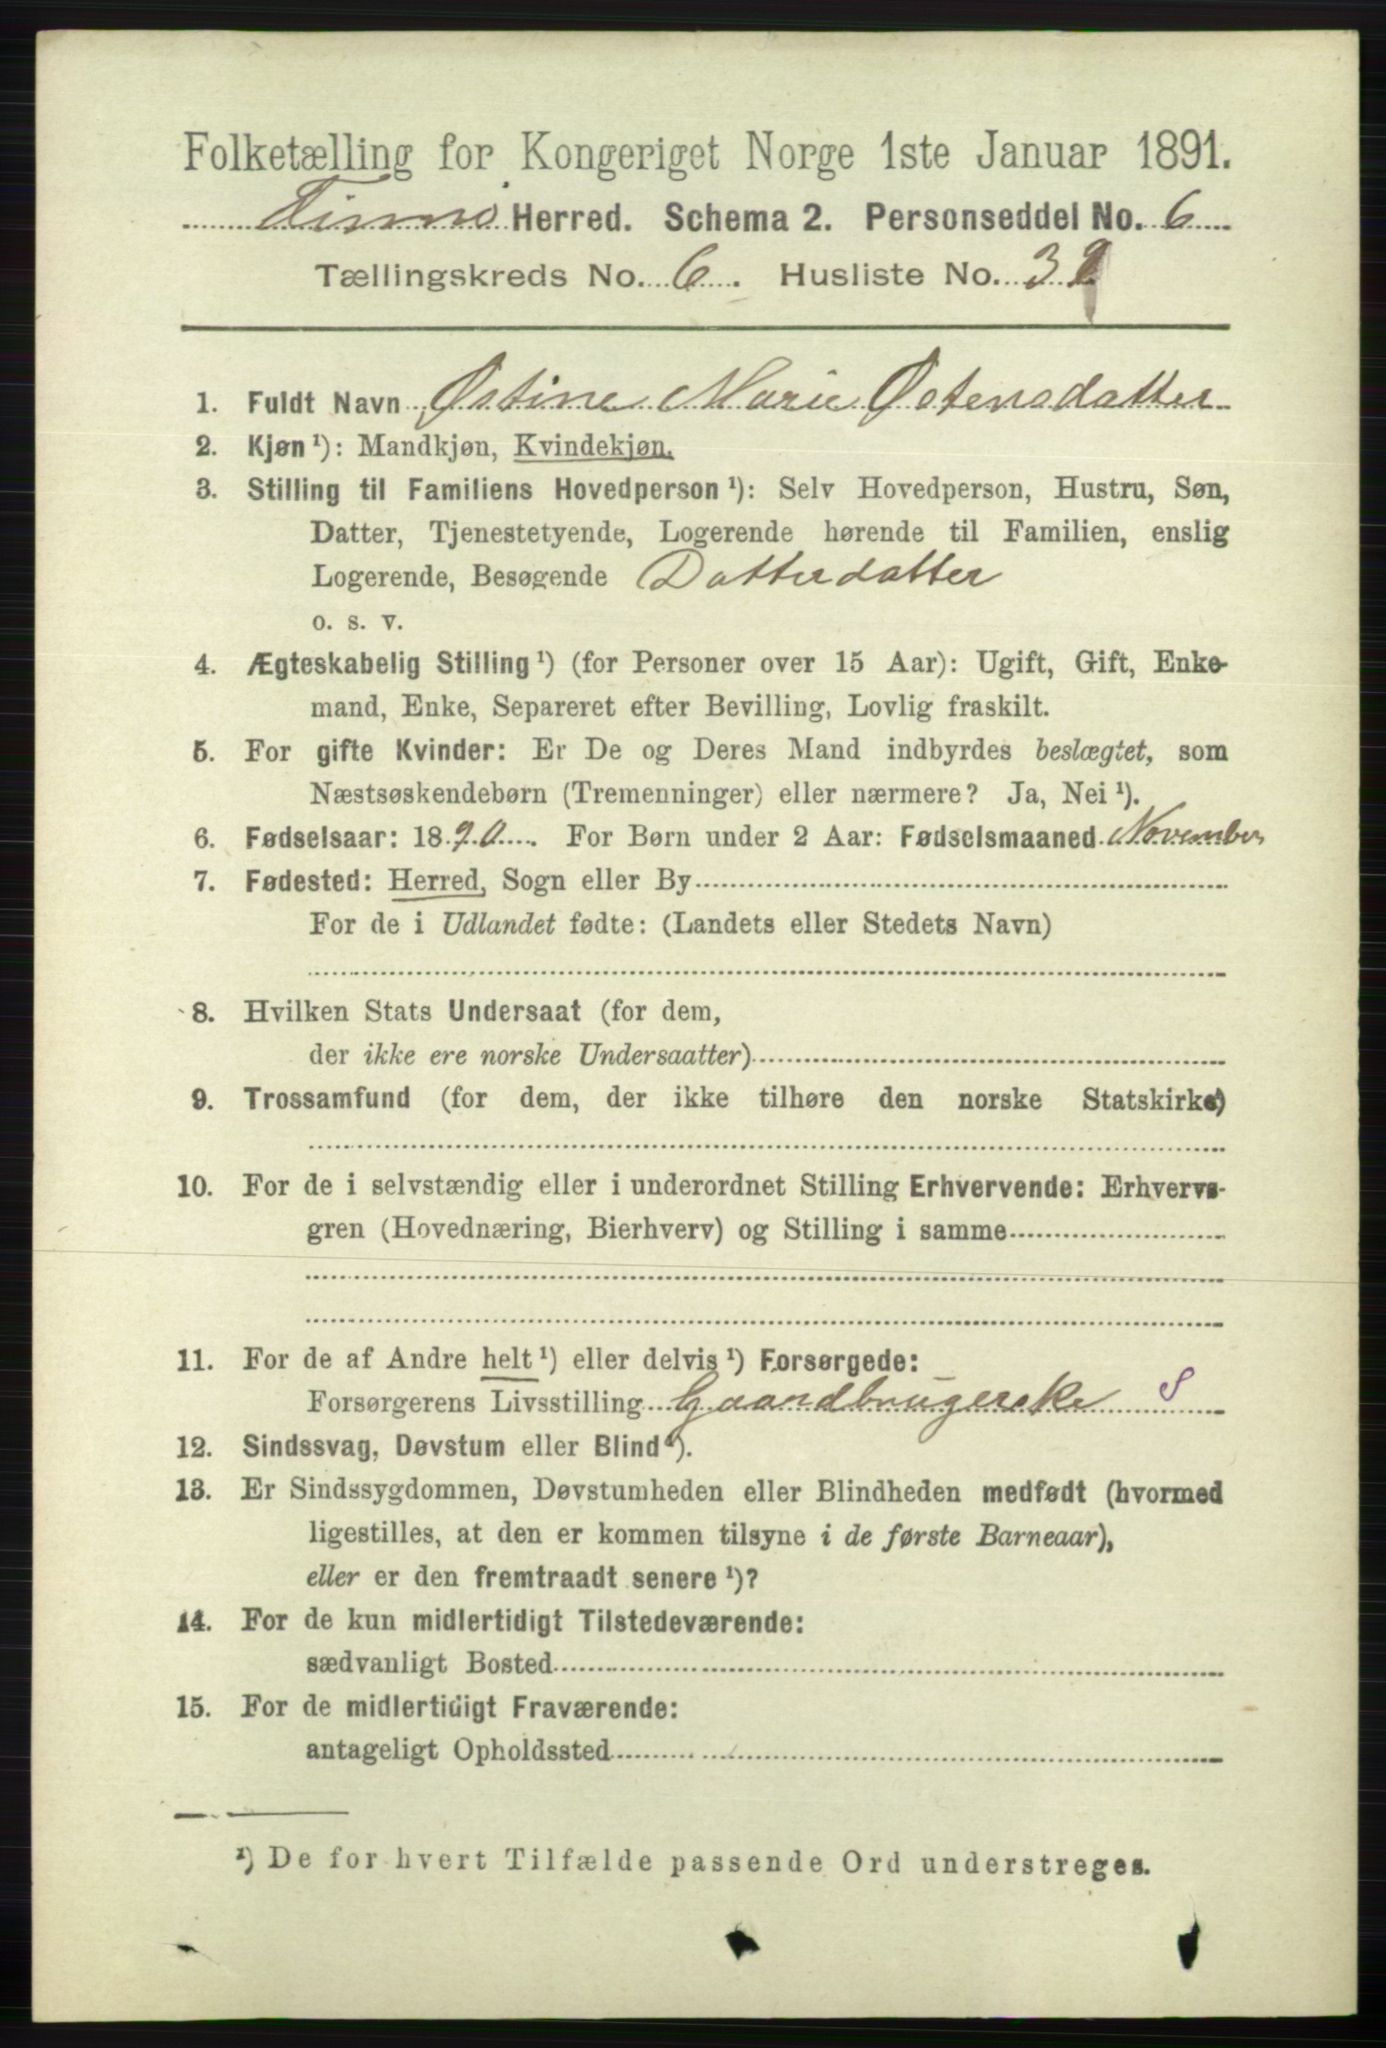 Folketælling for Kongeriget Norge 1ste Januar 1891.
Tinns Herred. Schema 2. Personseddel No. 6
Tællingskreds No. 6. Husliste No. 32
1. Fuldt Navn Østine Marie Østensdatter
2. Kjøn ¹): Mandkjøn, Kvindekjøn.
3. Stilling til Familiens Hovedperson ¹): Selv Hovedperson, Hustru, Søn,
Datter, Tjenestetyende, Logerende hørende til Familien, enslig
Logerende, Besøgende Datterdatter
o. s. v.
4. Ægteskabelig Stilling ¹) (for Personer over 15 Aar): Ugift, Gift, Enke-
mand, Enke, Separeret efter Bevilling, Lovlig fraskilt.
5. For gifte Kvinder: Er De og Deres Mand indbyrdes beslægtet, som
Næstsøskendebørn (Tremenninger) eller nærmere? Ja, Nei ¹).
6. Fødselsaar: 1890. For Børn under 2 Aar: Fødselsmaaned November
7. Fødested: Herred, Sogn eller By
For de i Udlandet fødte: (Landets eller Stedets Navn)
8. Hvilken Stats Undersaat (for dem,
der ikke ere norske Undersaatter)
9. Trossamfund (for dem, der ikke tilhøre den norske Statskirke)
10. For de i selvstændig eller i underordnet Stilling Erhvervende: Erhvervs-
gren (Hovednæring, Bierhverv) og Stilling i samme
11. For de af Andre helt ¹) eller delvis ¹) Forsørgede:
Forsørgerens Livsstilling Gaardbrugerske S
12. Sindssvag, Døvstum eller Blind ¹).
13. Er Sindssygdommen, Døvstumheden eller Blindheden medfødt (hvormed
ligestilles, at den er kommen tilsyne i de første Barneaar),
eller er den fremtraadt senere ¹)?
14. For de kun midlertidigt Tilstedeværende:
sædvanligt Bosted
15. For de midlertidigt Fraværende:
antageligt Opholdssted
¹) De for hvert Tilfælde passende Ord understreges.